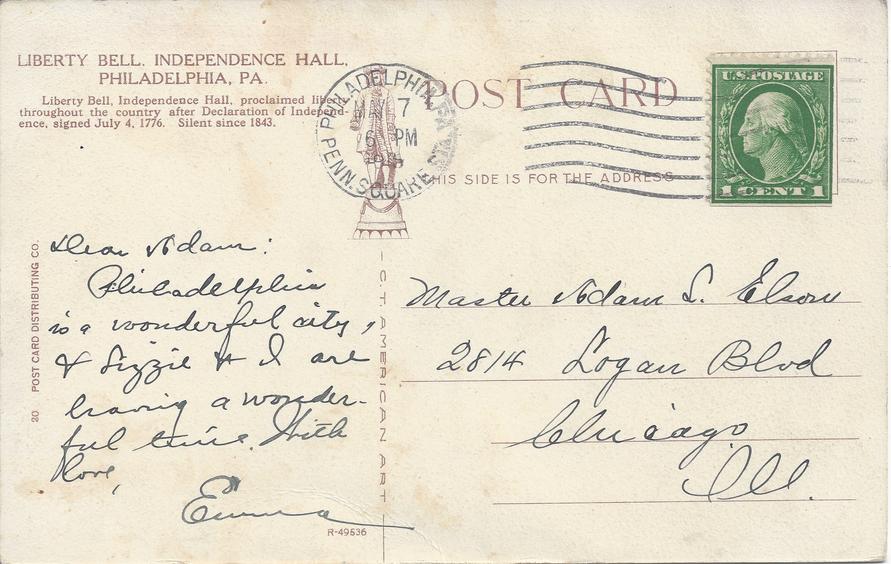 LIBERTY BELL. INDEPENDENCE HALL,
PHILADELPHIA, PA.
Liberty Bell, Independence Hall, proclaimed liberty
throughout the country after Declaration of Independ-
ence, signed July 4, 1776. Silent since 1843.
PHILADELPHIA, PA.
MAY 7
6 PM
PENN. SQUARE STA.
POST CARD
THIS SIDE IS FOR THE ADDRESS
U.S. POSTAGE
1 CENT 1
Dear Adam:
Philadelphia
is a wonderful city,
& Lizzie & I are
having a wonder-
ful time. With
love,
Emma
Master Adam S. Elson
2814 Logan Blvd
Chicago
Ill.
20 POST CARD DISTRIBUTING CO.
C.T. AMERICAN ART
R-49536